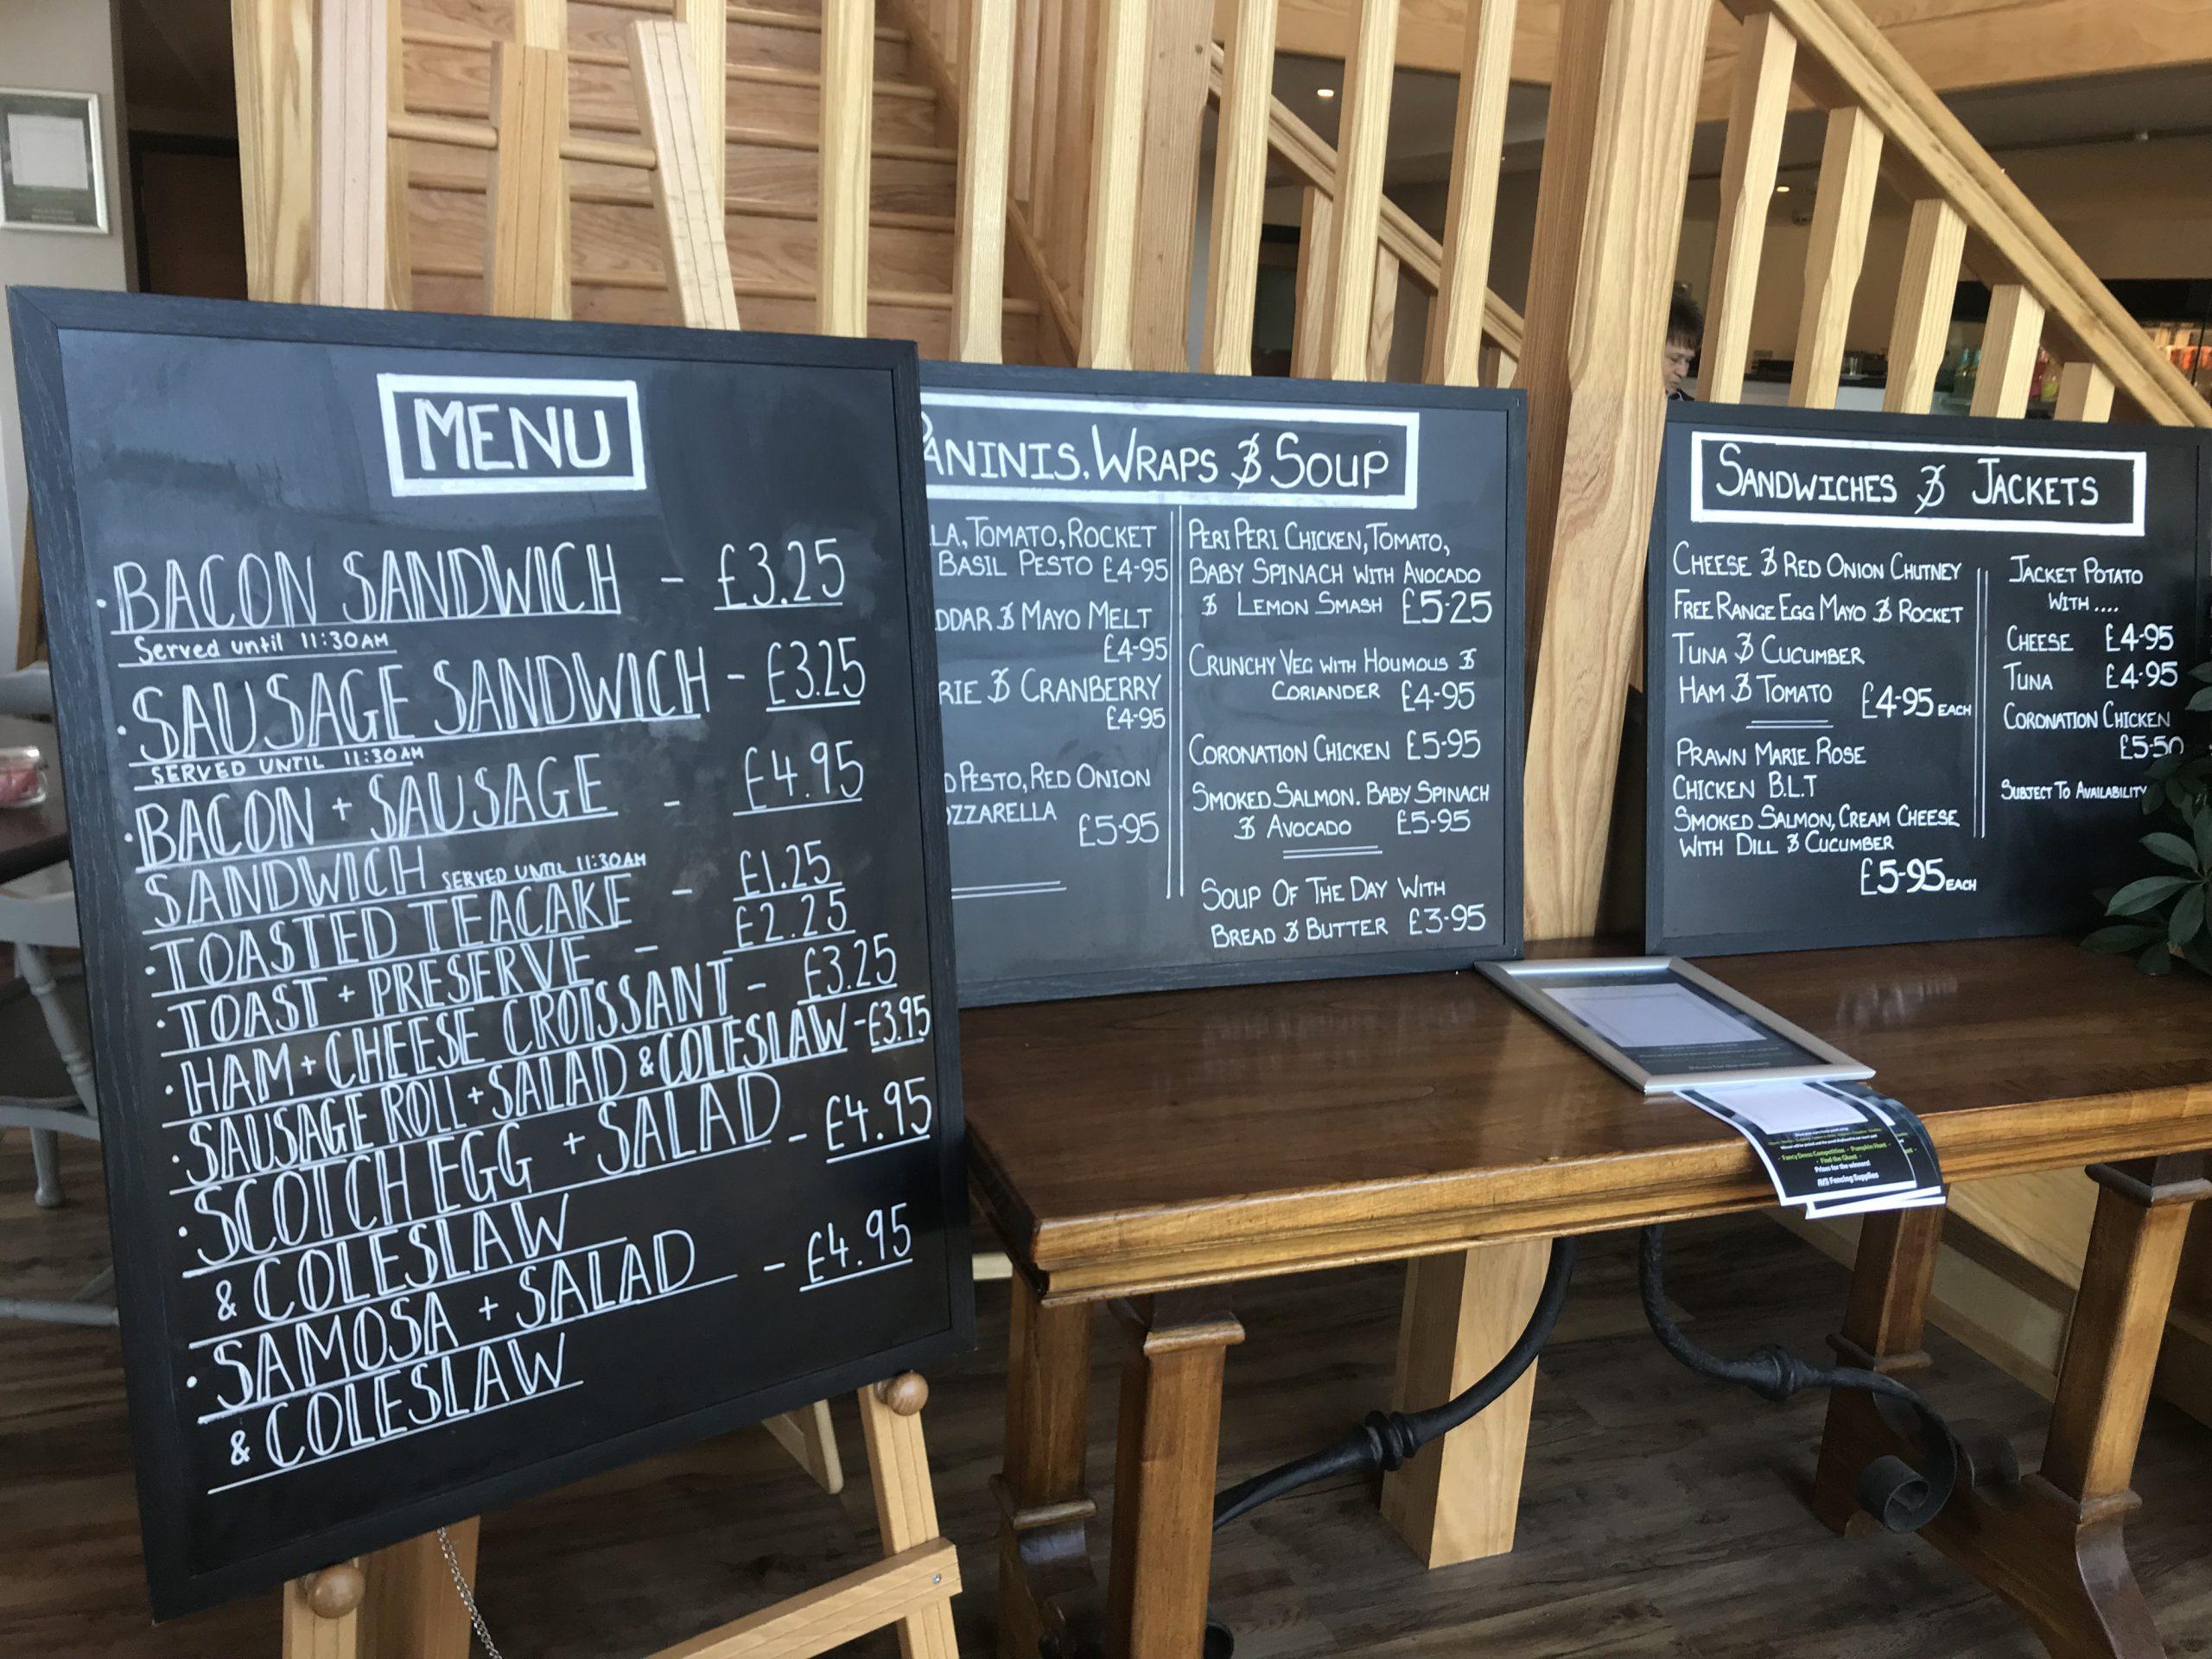 MENU
· BACON SANDWICH - £3.25
Served until 11:30AM
· SAUSAGE SANDWICH - £3.25
SERVED UNTIL 11:30AM
· BACON + SAUSAGE - £4.95
SANDWICH SERVED UNTIL 11:30AM
· TOASTED TEACAKE - £1.25
· TOAST + PRESERVE - £2.25
· HAM + CHEESE CROISSANT - £3.25
· SAUSAGE ROLL + SALAD & COLESLAW - £3.95
· SCOTCH EGG + SALAD - £4.95
& COLESLAW
· SAMOSA + SALAD - £4.95
& COLESLAW
PANINIS, WRAPS & SOUP
LA, TOMATO, ROCKET
BASIL PESTO £4-95
DDAR & MAYO MELT
£4-95
RIE & CRANBERRY
£4-95
PESTO, RED ONION
ZZARELLA
£5-95
PERI PERI CHICKEN, TOMATO,
BABY SPINACH WITH AVOCADO
& LEMON SMASH £5-25
CRUNCHY VEG WITH HOUMOUS &
CORIANDER £4-95
CORONATION CHICKEN £5-95
SMOKED SALMON. BABY SPINACH
& AVOCADO £5-95
SOUP OF THE DAY WITH
BREAD & BUTTER £3-95
SANDWICHES & JACKETS
CHEESE & RED ONION CHUTNEY
FREE RANGE EGG MAYO & ROCKET
TUNA & CUCUMBER
HAM & TOMATO £4-95 EACH
PRAWN MARIE ROSE
CHICKEN B.L.T
SMOKED SALMON, CREAM CHEESE
WITH DILL & CUCUMBER
£5-95 EACH
JACKET POTATO
WITH ....
CHEESE £4-95
TUNA £4-95
CORONATION CHICKEN
£5-50
SUBJECT TO AVAILABILITY
Fancy Dress Competition - Pumpkin Hunt -
- Find the Ghost -
Prizes for the winners!
AVS Fencing Supplies